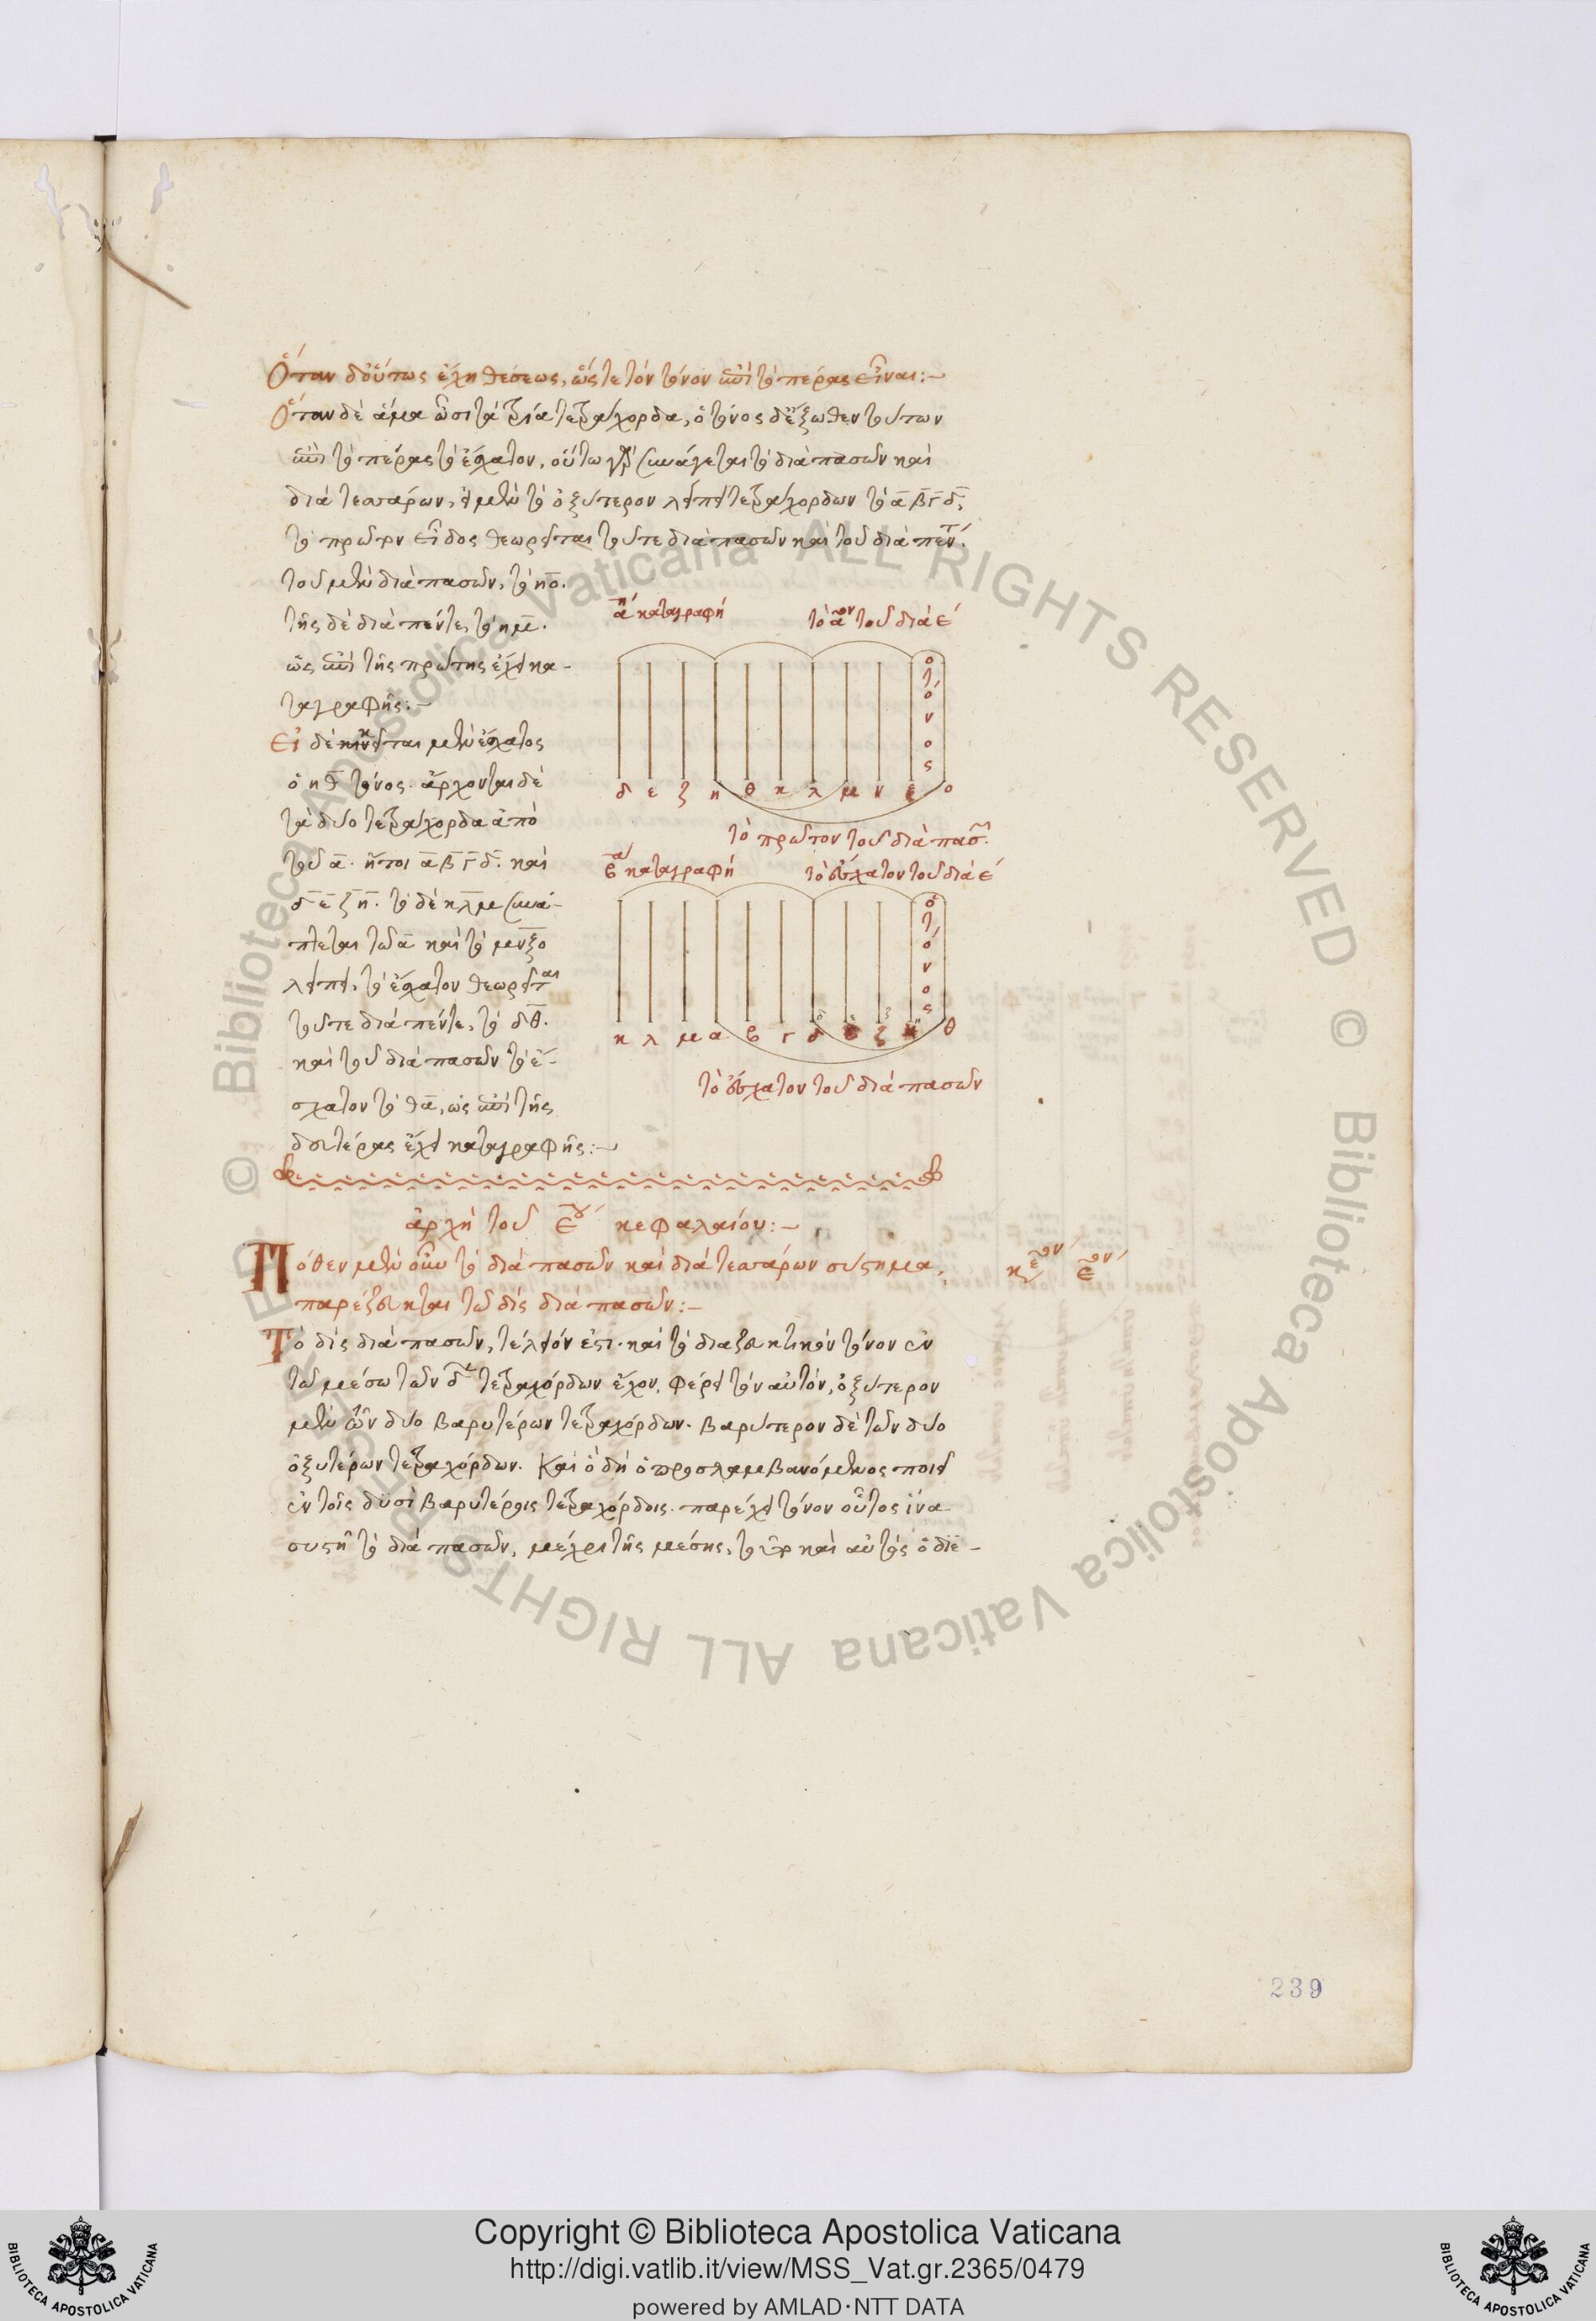 Ὅταν δ' οὕτως ἔχῃ θέσεως, ὥστε τὸν τόνον ἐπὶ τὸ πέρας εἶναι:~
Ὅταν δὲ ἅμα ὦσι τὰ τρία τετράχορδα, ὁ τόνος δ' ἔξωθεν τούτων
ἐπὶ τὸ πέρας τὸ ἔσχατον, οὕτω γὰρ συνάγεται τὸ διὰ πασῶν καὶ
διὰ τεσσάρων, εἰ μὲν τὸ ὀξύτερον λείπει τετράχορδων τὸ α β γ δ,
τὸ πρῶτον εἶδος θεωρεῖται τοῦ τε διὰ πασῶν καὶ τοῦ διὰ πέντ.
τοῦ μὲν διὰ πασῶν, τὸ ηο.
τῆς δὲ διὰ πέντε, τὸ ημ.
ὡς ἐπὶ τῆς πρώτης ἔχει κα-
ταγραφῆς:~
αη καταγραφή
τὸ αον τοῦ διὰ ε
ὁ τόνος
δ ε ζ η θ κ λ μ ν ξ ο
τὸ πρῶτον τοῦ διὰ πασ.
Εἰ δὲ κινεῖται μὲν ἔσχατος
ὁ ηθ τόνος. ἄρχονται δὲ
τὰ δύο τετράχορδα ἀπὸ
τοῦ α. ἤτοι α β γ δ. καὶ
δ ε ζ η. τὸ δὲ κλμ συνά-
πτεται τῷ α καὶ τὸ μνξο
λείπει, τὸ ἔσχατον θεωρεῖται
τοῦ τε διὰ πέντε, τὸ δθ.
καὶ τοῦ διὰ πασῶν τὸ ἔ-
σχατον τὸ θα, ὡς ἐπὶ τῆς
δευτέρας ἔχει καταγραφῆς:~
βα καταγραφή
τὸ ἔσχατον τοῦ διὰ ε
ὁ τόνος
κ λ μ α β γ δ ε ζ η θ
τὸ ἔσχατον τοῦ διὰ πασῶν
ἀρχὴ τοῦ εου κεφαλαίου:~
Πόθεν μὲν οὖν τὸ διὰ πασῶν καὶ διὰ τεσσάρων σύστημα,
παρέζευκται τῷ δὶς διὰ πασῶν:~
κεον εον
Τὸ δὶς διὰ πασῶν, τέλειόν ἐστι. καὶ τὸ διαζευκτικὸν τόνον ἐν
τῷ μέσῳ τῶν δ τετραχόρδων ἔχον, φέρει τὸν αὐτὸν, ὀξύτερον
μὲν ὢν δύο βαρυτέρων τετραχόρδων. βαρύτερον δὲ τῶν δύο
ὀξυτέρων τετραχόρδων. Καὶ ὃ δὴ ὁ προσλαμβανόμενος ποιεῖ
ἐν τοῖς δυσὶ βαρυτέροις τετραχόρδοις. παρέχει τόνον οὗτος ἵνα
συστῇ τὸ διὰ πασῶν, μέχρι τῆς μέσης, καὶ αὐτὸς ὁ διε-
239
Copyright © Biblioteca Apostolica Vaticana
http://digi.vatlib.it/view/MSS_Vat.gr.2365/0479
powered by AMLAD·NTT DATA
BIBLIOTECA APOSTOLICA VATICANA
BIBLIOTECA APOSTOLICA VATICANA
© Biblioteca Apostolica Vaticana ALL RIGHTS RESERVED © Biblioteca Apostolica Vaticana ALL RIGHTS RESERVED